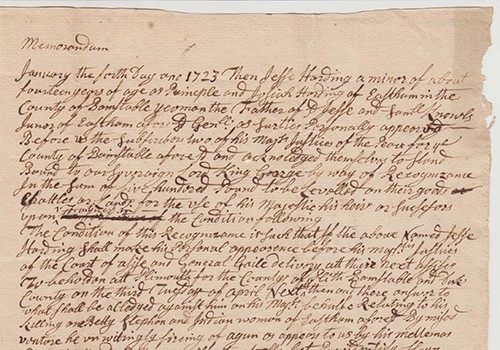 Memorandum
January the forth Day ano 1723 Then Jesse Harding a minor of about
fourteen years of age as Prinsiple and Josiah Harding of Eastham in the
County of Barnstable yeoman the Father of sd Jesse and Samll Knowls
Junor of Eastham afors sd Genll: as surties Personally appeared
Before us the Subscribers two of his Majts Justices of the Peace for ye
County of Barnstable aforesd and acknoledged themselves to stand
Bound to our Sovereign Lord King George by way of Recognizance
In the sum of five hundred Pound to be Levelled on their goods or
Chattles or Lands for the use of his Majestie his heirs or Sucsesors
upon the Condition following
The Condition of this Recognizance is such that if the above Named Jesse
Harding shall make his Personal appearence before his majts Justices
of the Court of assise and General Goile delivery att their next assise
To be holden att Plimouth for the County of Plimouth Barnstable and Dukes
County on the third Tuesday of April Next then and there answer to
what shall be alledged against him on his majts behalfe Relating to his
killing one Betty Stephen and Indian woman of Eastham aforesd By misad
venture he unwitingly firing of a gun as appears to us by his